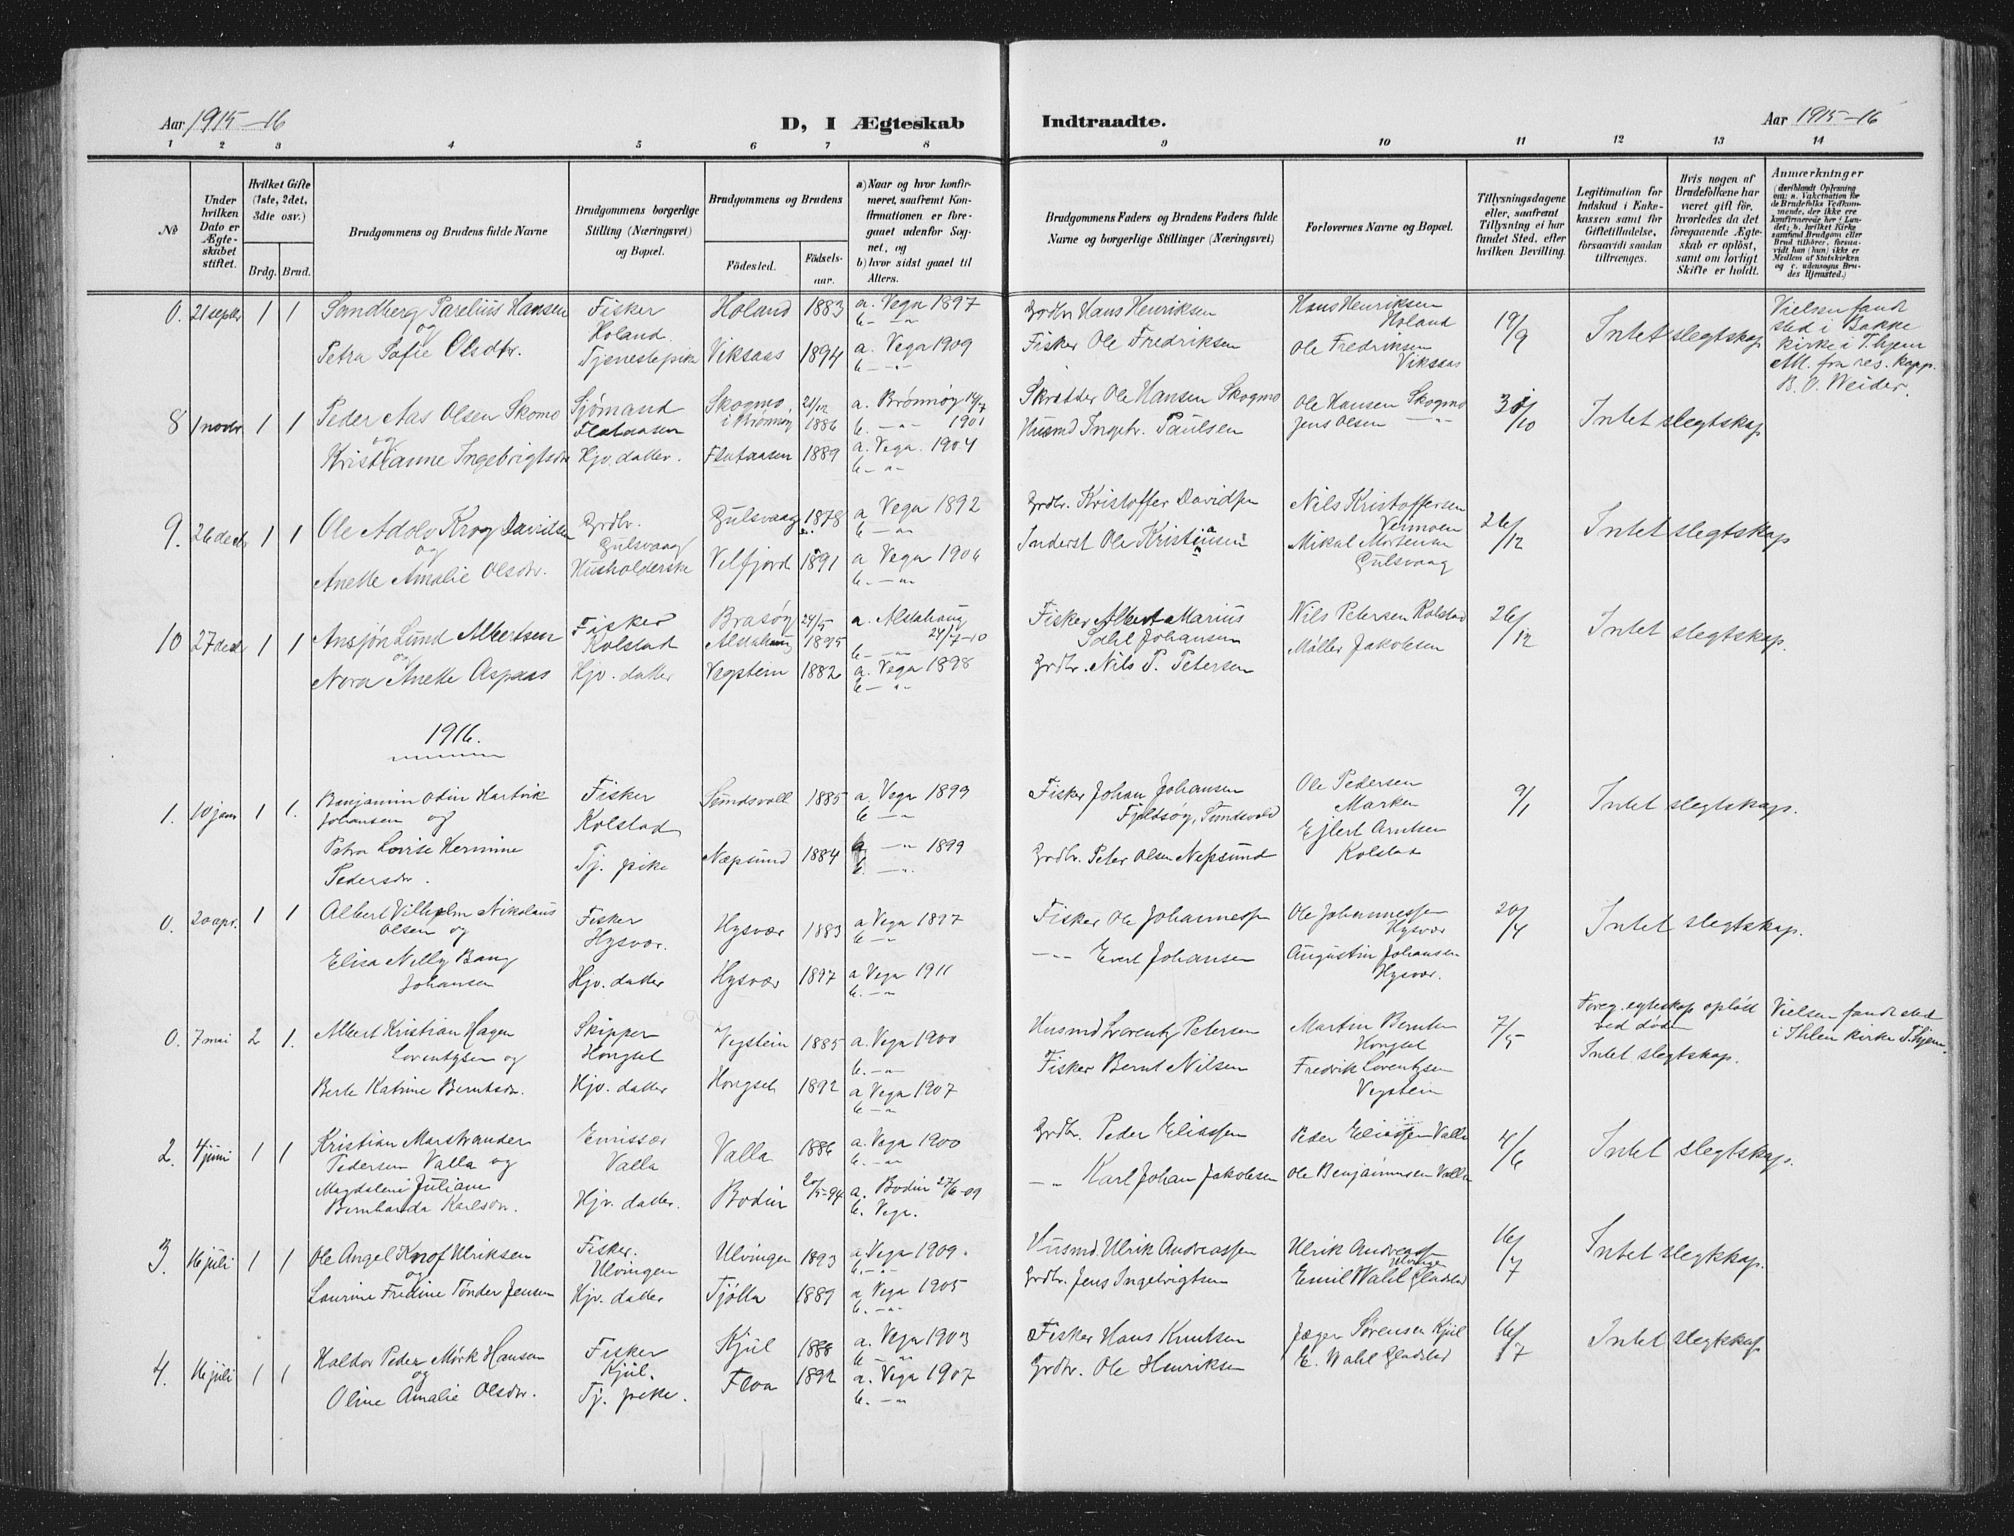 Aar 1915-16
D, I Ægteskab
Indtraadte.
Aar 1915-16
1 2 3 4 5 6 7 8 9 10 11 12 13 14
No
Under hvilken Dato er Ægteskabet stiftet.
Hvilket Gifte (1ste, 2det, 3die osv.)
Brdg. Brud.
Brudgommens og Brudens fulde Navne
Brudgommens borgerlige Stilling (Næringsvei) og Bopæl.
Brudgommens og Brudens
Fødested. Fødselsaar.
a) Naar og hvor konfirmeret, saafremt Konfirmationen er foregaaet udenfor Sognet, og
b) hvor sidst gaaet til Alters.
Brudgommens Faders og Brudens Faders fulde Navne og borgerlige Stillinger (Næringsvei)
Forlovernes Navne og Bopæl.
Tillysningsdagene eller, saafremt Tillysning ei har fundet Sted, efter hvilken Bevilling.
Legitimation for Indskud i Enkekassen samt for Giftetilladelse, forsaavidt saadan tiltrænges.
Hvis nogen af Brudefolkene har været gift før, hvorledes da det foregaaende Ægteskab er opløst, samt om lovligt Skifte er holdt.
Anmærkninger
0. 21 septbr 1 1 Sandberg Parelius Hansen Fisker Holand 1883 a. Vega 1897 Grdbr Hans Henriksen Hans Henriksen 19/9 Intet slegtskap Vielsen fandt
og Holand b. -"- Holand sted i Bakke
Petra Sofie Olsdtr. Tjenestepike Viksaas 1894 a. Vega 1909 Fisker Ole Fredriksen Ole Fredriksen kirke i Thjem
b. -"- Viksaas Att. fra res. kapp.
B. O. Weider.
8 1 novbr 1 1 Peder Aas Olsen Skomo Sjømand Skogmo, 21/12 a. Brønnøy 14/7 Skrædder Ole Hansen Skogmo Ole Hansen Skogmo 31/10 Intet slegtskap
og Flataasen i Brønnøy 1886 b. -"- 1901 Husmd Ingebr. Paulsen Jens Olsen -"-
Kristianne Ingebrigtsdtr Hjv. datter. Flataasen 1889 a. Vega. 1904
b. -"-
9. 26 decbr 1 1 Ole Adolv Krog Davidsen Grdbr. Gulsvaag 1878 a Vega 1892 Grdbr. Kristoffer Davidsen Nils Kristoffersen 26/12 Intet slegtskap
og Gulsvaag b. -"- Vermoen
Anette Amalie Olsdtr. Husholderske Velfjord 1891 a Vega 1906 Inderst Ole Kristiansen Mikal Mortensen
b. -"- Gulsvaag
10 27 decbr 1 1 Ansjøn Lund Albertsen Fisker Brasøy 24/5 a. Alstahaug Fisker Albert Marius Nils Petersen Kolstad 26/12 Intet slegtskap.
og Kolstad Alstahaug 1895 b. -"- 24/7-10 Dahl Johansen
Nora Anette Aspaas Hjv. datter Vegstein 1882 a. Vega 1898 Grdbr. Nils P. Petersen Møller Jakobsen
b. -"-
1916.
1. 10 jan 1 1. Benjamin Odin Hartvik Fisker Sundsvoll 1885 a. Vega 1899 Fisker Johan Johansen Ole Pedersen 9/1 Intet slegtskap.
Johansen og Kolstad b. -"- Fjeldsøy, Tundsvold Marken
Petra Lovise Hermine Tj. pike Næpsund 1884 a -"- 1899 Grdbr. Peter Olsen Nepsund Ejlert Arntsen
Pedersdtr. b. -"- Kolstad
0. 20 apr. 1 1 Albert Vilhelm Nikolaus Fisker Hysvær 1883 a Vega 1897 Fisker Ole Johannessen Ole Johannessen 20/4 Intet slegtskap.
Olsen og Hysvær. b. -"- Hysvær
Elisa Nelly Bang Hjv. datter Hysvær 1897 a Vega 1911 -"- Evert Johansen Augustin Johansen
Johansen b. -"- Hysvær.
0. 7 mai 2 1. Albert Kristian Hagen Skipper Vegstein 1885 a. Vega 1900 Husmd Lorentz Petersen Martin Berntsen 7/5 Foreg. egteskap opløst Vielsen fandt sted
Lorentzen og Hongset b. -"- Hongset ved døden i Ihlen kirke Thjem.
Berte Katrine Berntsdtr. Hjv. datter Hongset 1892 a Vega 1907 Fisker Bernt Nilsen Fredrik Lorentzen Intet slegtskap.
b. -"- Vegstein
2. 4 juni 1 1 Kristian Marstrander Emissær Valla 1886 a. Vega 1900 Grdbr. Peder Eliassen Peder Eliassen Valla 4/6 Intet slegtskap.
Pedersen Valla og Valla b. -"-
Magdaleni Juliane Hjv. datter. Bodin 20/5-94 a. Bodin 27/6-09 -"- Karl Johan Jakobsen Ole Benjaminsen Valla
Bernharda Karlsdtr. b. Vega.
3. 16 juli 1 1 Ole Angel Knof Ulriksen Fisker. Ulvingen 1893 a Vega 1909. Husmd. Ulrik Andreassen Ulrik Andreassen 16/7 Intet slegtskap.
og Ulvingen b. -"- Ulvingen
Laurine Fredine Tønder Jensen Hjv. datter Tjøtta 1889 a Vega 1905 Grdbr. Jens Ingebrigtsen Emil Wahl Gladstad
b. -"-
4. 16 juli 1 1 Haldor Peder Mørk Hansen Fisker Kjul 1888 a. Vega 1903 Fisker Hans Knutsen Jæger Sørensen Kjul 16/7 Intet slegtskap
og Kjul. b. -"-
Oline Amalie Olsdtr. Tj. pike. Floa 1892 a. Vega 1907 Grdbr. Ole Henriksen E. Wahl Gladstad
b. -"-